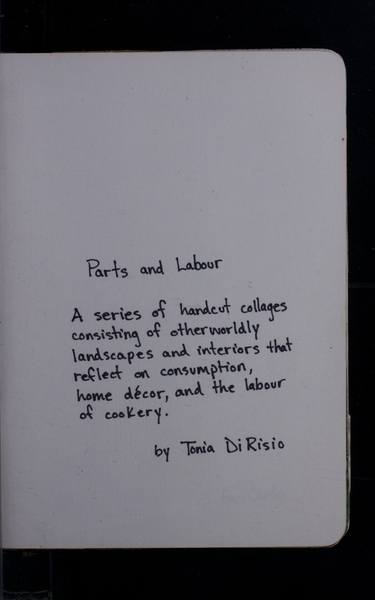 Parts and Labour
A series of handcut collages
consisting of otherworldly
landscapes and interiors that
reflect on consumption,
home décor, and the labour
of cookery.
by Tonia DiRisio